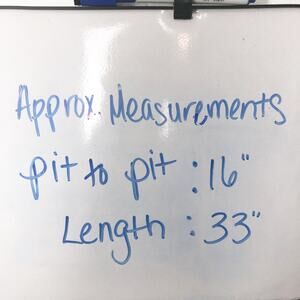 Approx. Measurements
pit to pit : 16"
Length : 33"